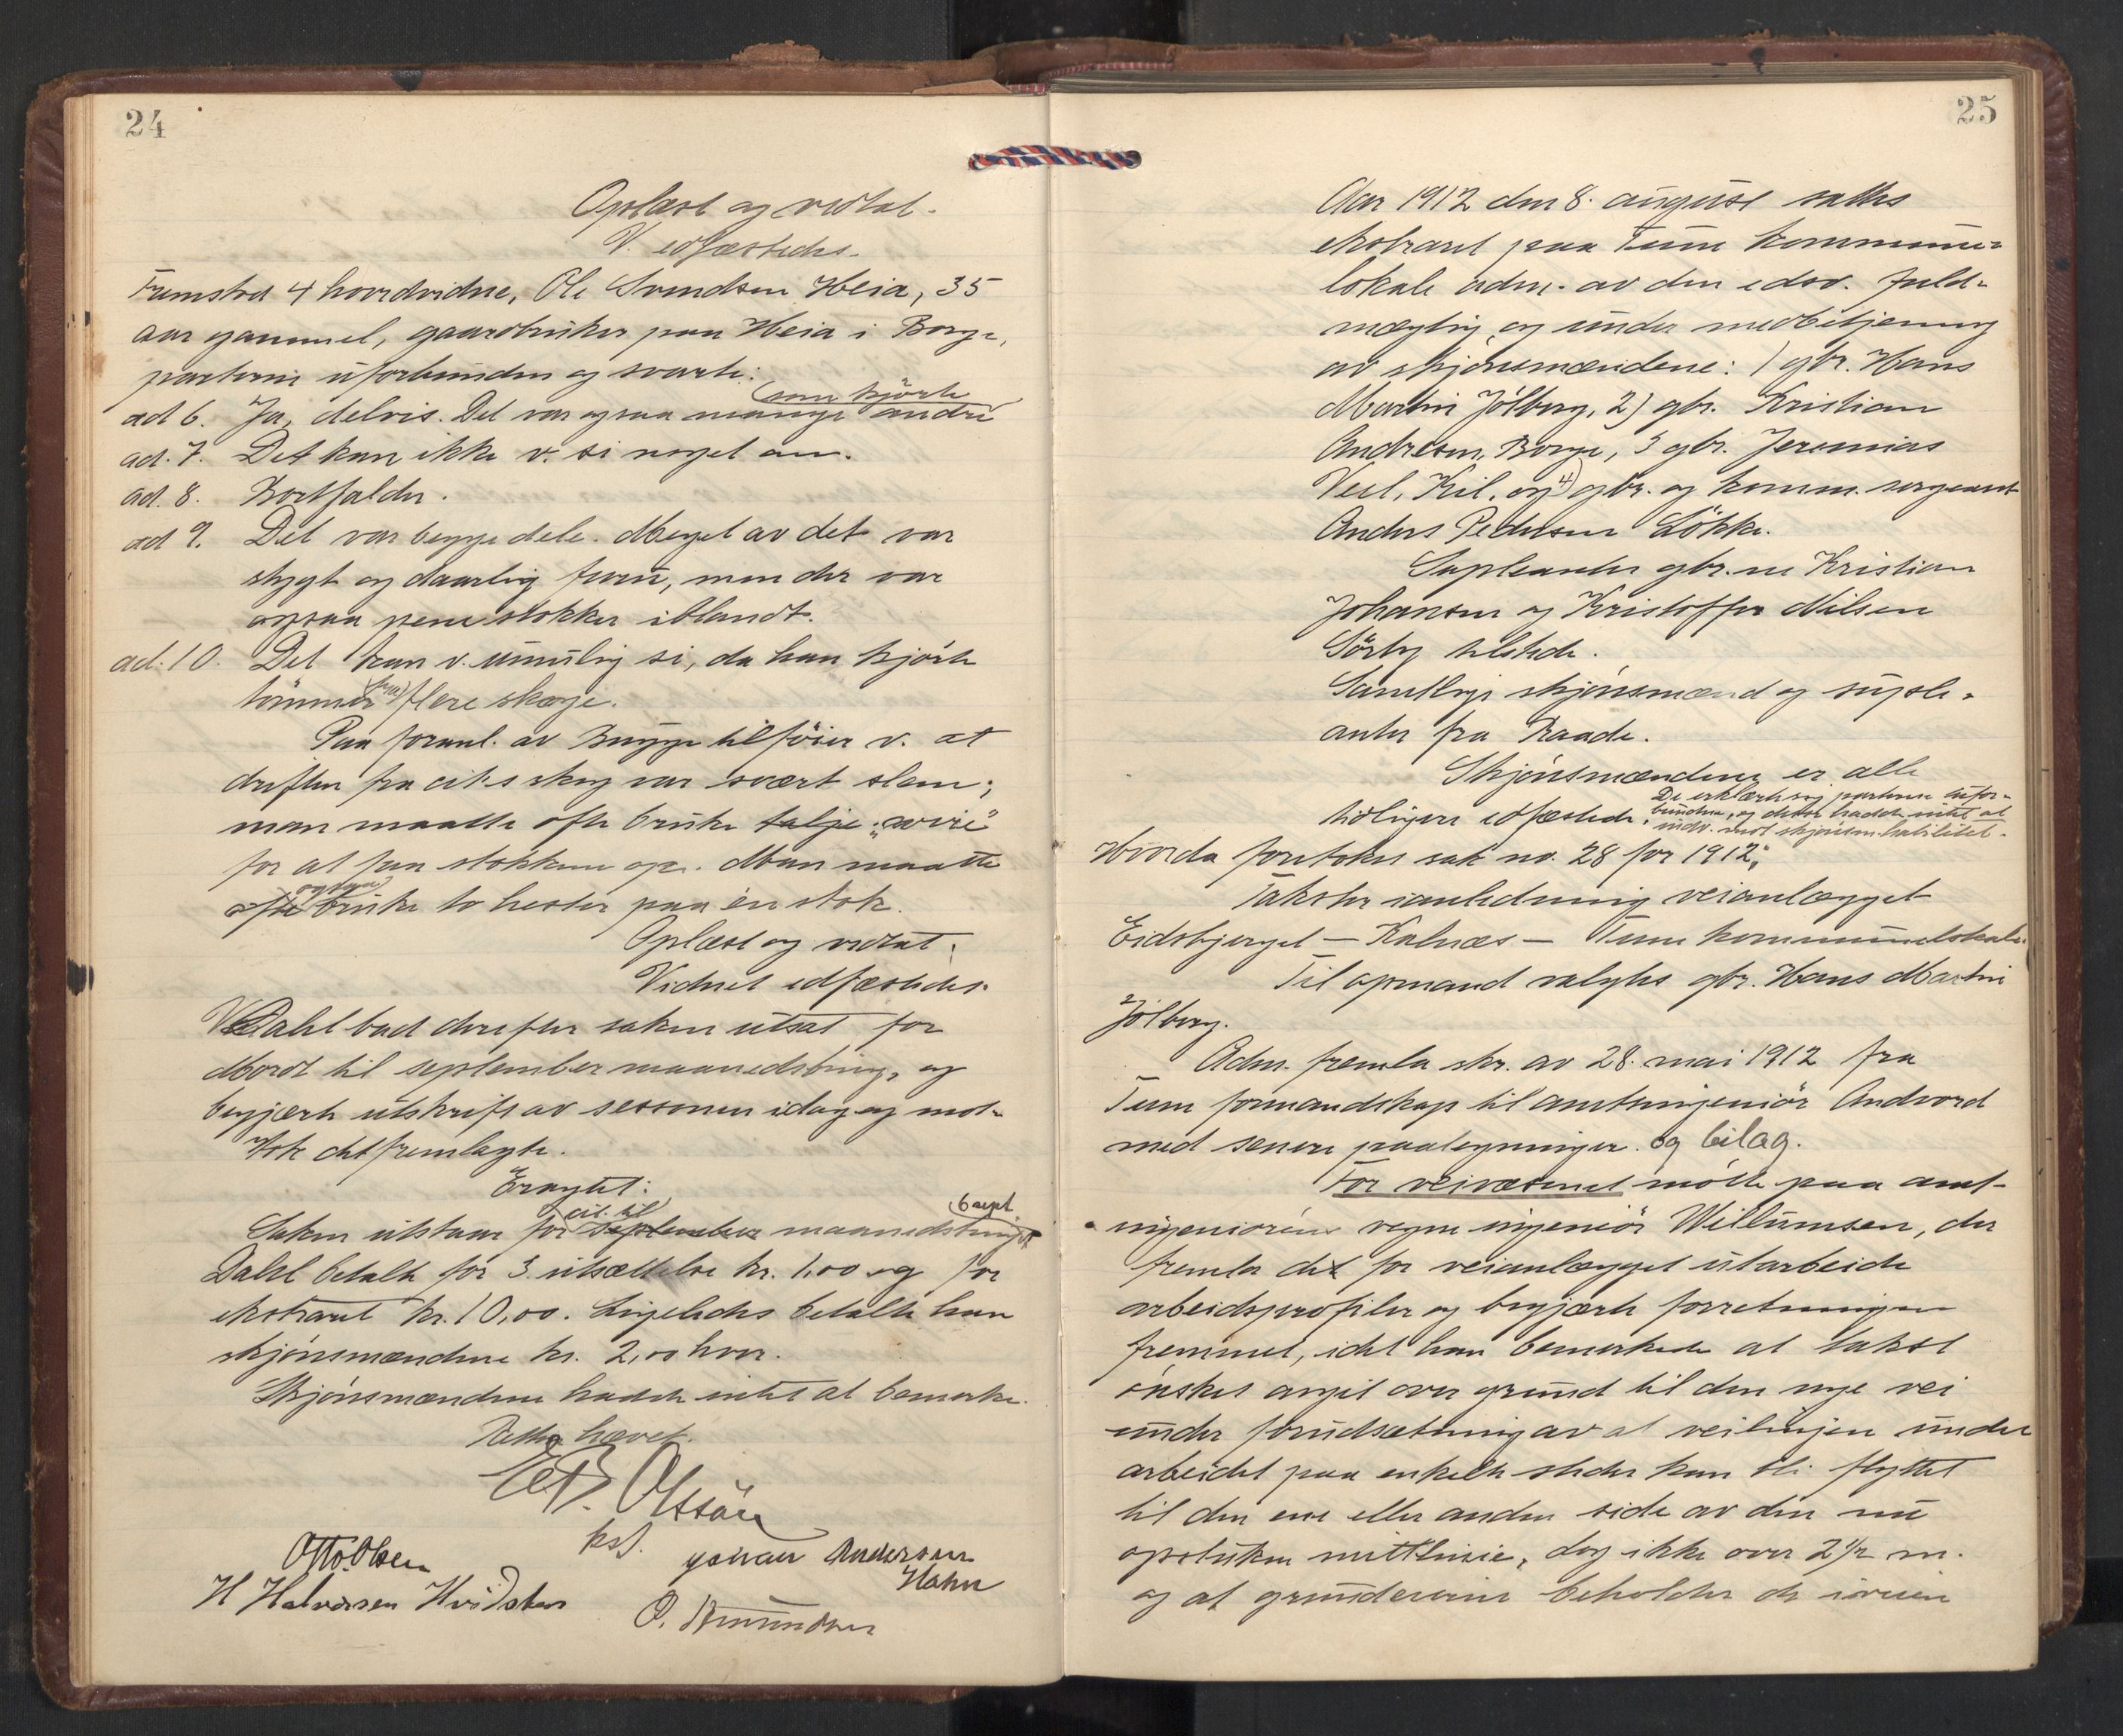 24
Oplæst og vedtat.
V. edfæstedes.
Fremstod 4 hovedvidne, Ole Svendsen Heia, 35
aar gammel, gaardbruker paa Heia i Borge,
parterne uforbunden og svarte:
som kjörte
ad 6. Ja, delvis. Det var ogsaa mange andre
ad. 7. Det kan ikke v. si noget om.
ad. 8. Bortfalder.
ad 9. Det var begge dele. Meget av det var
stygt og daarlig furu, men der var
ogsaa pene stokker iblandt.
ad. 10. Det kan v. umulig si, da han kjörte
tömmer fra flere skoge.
Paa foranl. av Bugge tilföier v. at
driften fra cit.s skog var svært slem;
man maatte ofte bruke talje "wire"
for at faa stokkene op. Man maatte
ogsaa
ofte bruke to hester paa én stok.
Oplæst og vedtat.
Vidnet edfæstedes.
Dahl bad derefter saken utsat for
Mordt til september maanedsting, og
begjærte utskrift av sessonen idag og mot-
tok det fremlagte.
Eragtet:
cit. til 6 sept.
Saken utstaar for september maanedsting
Dahl betalte for 3. utsættelse kr. 1,00 og for
ekstraret kr. 10,00. Ligeledes betalte han
skjönsmændene kr. 2,00 hver.
Skjönsmændene hadde intet at bemerke.
Retten hævet.
Olssön
kst.
Otto Olsen
Johan Andersen
Hahn
H Halvorsen Hvidsten
O. Amundsen
25
Aar 1912 den 8. august sattes
ekstraret paa Tune kommune-
lokale adm. av den edsv. fuld-
mægtig og under medbetjening
av skjönsmændene: 1 gbr. Hans
Martin Jölberg, 2) gbr. Kristian
Andresen, Borge, 3 gbr. Jeremias
Veel, Kil, og 4) gbr. og komm. sergeant
Anders Pedersen Lökke.
Supleanter gbr.ne Kristian
Johansen og Kristoffer Nilsen
Sörby tilstede.
Samtlige skjönsmænd og suple-
anter fra Raade.
Skjönsmændene er alle
tidligere edfæstede. De erklærte sig parterne ufor-
bundne, og disse hadde intet at
indv. mot skjönsm. habilitet.
Hvorda foretokes sak no. 28 for 1912:
Takster ianledning veianlægget
Eidsbjerget – Kalnæs – Tune kommunelokale.
Til opmand valgtes gbr. Hans Martin
Jölberg.
Adm. fremla skr. av 28. mai 1912 fra
Tune formandskap til amtsingeniör Andvord
med senere paategninger og bilag.
For veivæsenet mötte paa amt-
ingeniörens vegne ingeniör Willumsen, der
fremla det for veianlægget utarbeide
arbeidsprofiler og begjærte forretningen
fremmet, idet han bemerkede at takst
önskes avgit over grund til den nye vei
under forudsætning av at veilinjen under
arbeidet paa enkelte steder kan bli flyttet
til den ene eller anden side av den nu
opstukne mittlinie, dog ikke over 2 1/2 m.
og at grundeierne beholder de iveien